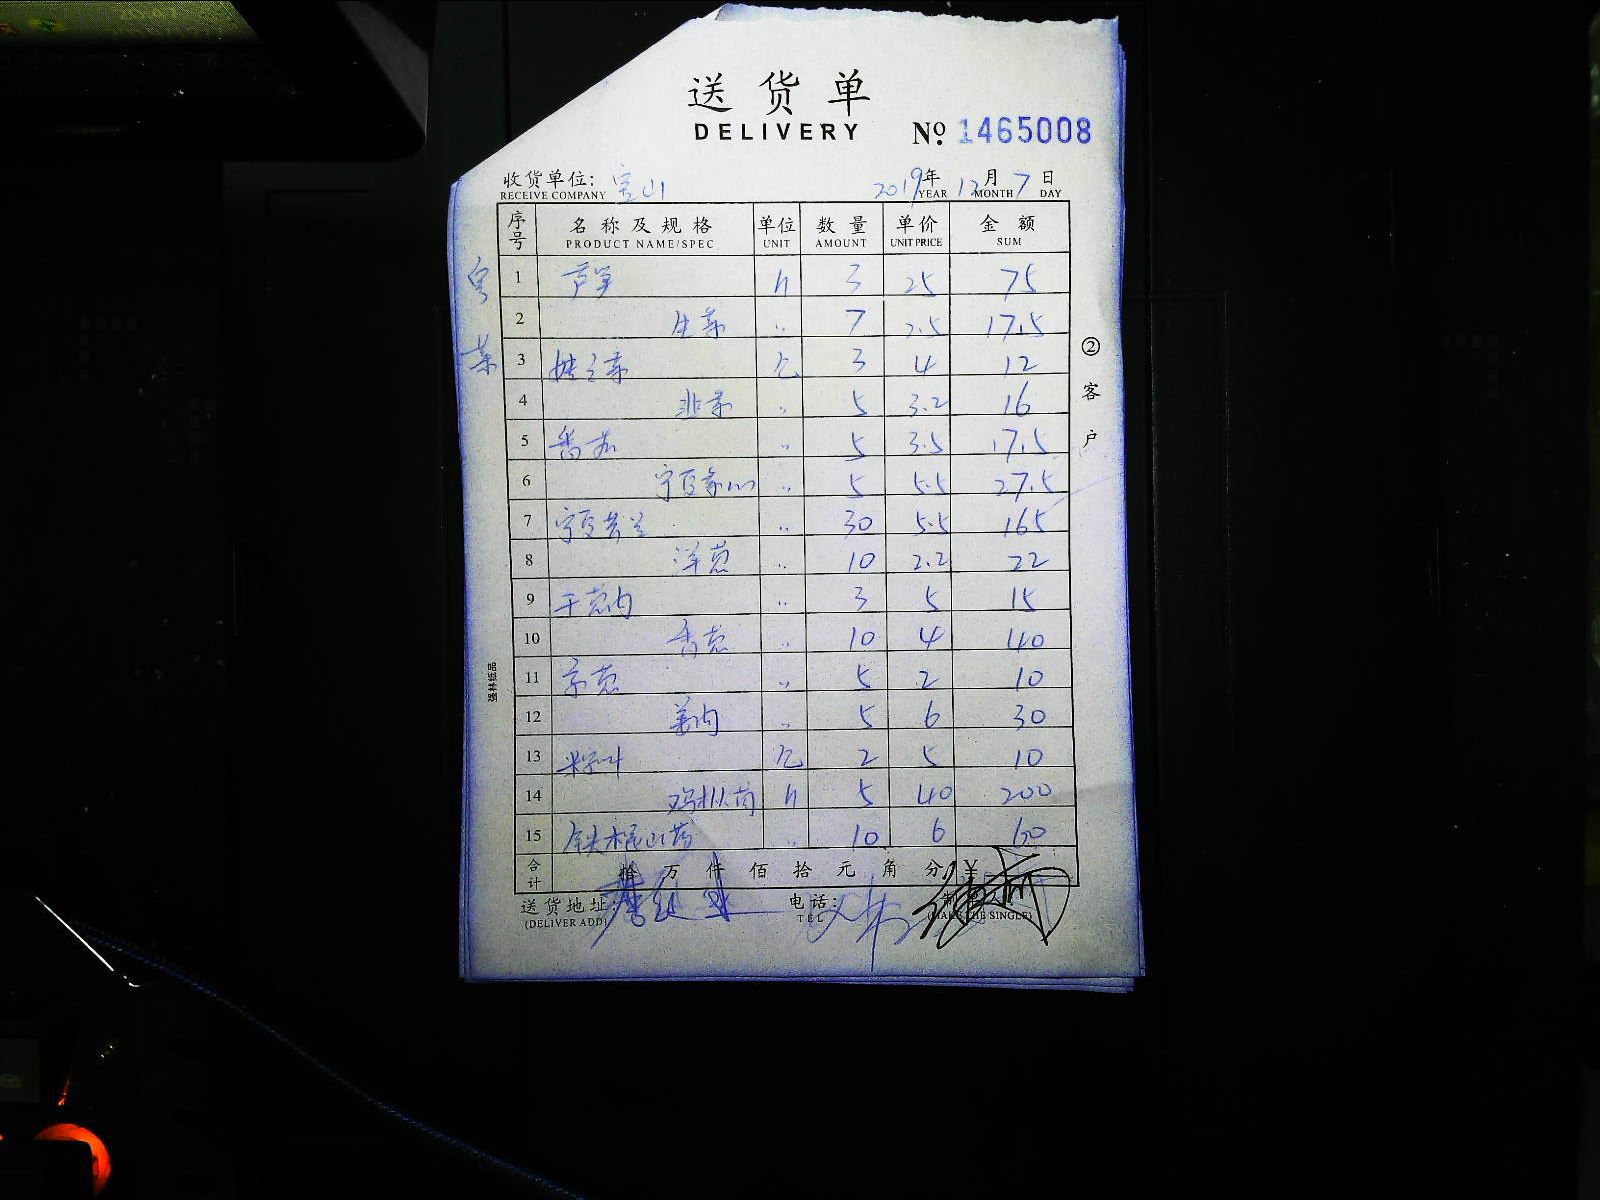 送货单
DELIVERY
№ 1465008
收货单位: 宝山 2019年12月7日
RECEIVE COMPANY YEAR MONTH DAY
序号 名称及规格 单位 数量 单价 金额
PRODUCT NAME/SPEC UNIT AMOUNT UNIT PRICE SUM
1 芦笋 3 25 75
2 生菜 〃 7 2.5 17.5
3 娃娃菜 3 4 12
4 韭菜 〃 5 3.2 16
5 番茄 〃 5 3.5 17.5
6 宁夏菜心 〃 5 5.5 27.5
7 宁夏芥兰 〃 30 5.5 165
8 洋葱 〃 10 2.2 22
9 干葱肉 〃 3 5 15
10 香葱 〃 10 4 40
11 京葱 〃 5 2 10
12 姜肉 〃 5 6 30
13 2 5 10
14 鸡枞菌 5 40 200
15 铁棍山药 〃 10 6 60
合计 拾 万 仟 佰 拾 元 角 分 ¥
送货地址: 电话:
(DELIVER ADD) TEL (MAKE THE SINGLE)
②客户
强林纸品